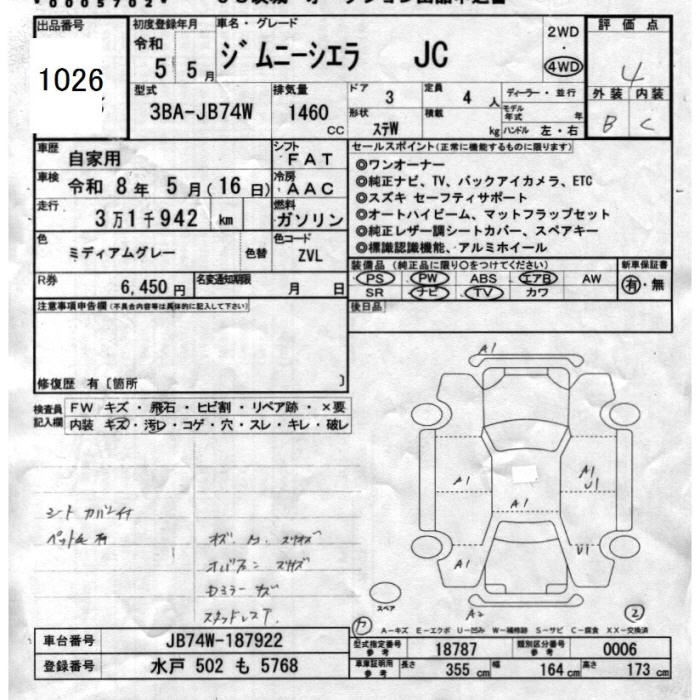 0005702
出品番号
1026
初度登録年月
令和
5 5月
車名・グレード
ジムニーシエラ JC
2WD
・
4WD
評価点
4
外装 内装
B C
型式
3BA-JB74W
排気量
1460
CC
ドア
3
定員
4 人
ディーラー・並行
形状
ステW
積載
kg
モデル年式 年
ハンドル 左・右
車歴
自家用
シフト
FAT
車検
令和 8年 5月(16日)
冷房
AAC
走行
3万1千942 km
燃料
ガソリン
色
ミディアムグレー
色替
色コード
ZVL
R券
6,450円
名変通知期限
月 日
セールスポイント(正常に機能するものに限ります)
◎ワンオーナー
◎純正ナビ、TV、バックアイカメラ、ETC
◎スズキ セーフティサポート
◎オートハイビーム、マットフラップセット
◎純正レザー調シートカバー、スペアキー
◎標識認識機能、アルミホイール
装備品(純正品に限り○をつけてください)
PS PW ABS エアB AW
SR ナビ TV カワ
新車保証書
有・無
後日品
注意事項申告欄(不具合内容等は具体的に記入して下さい)
修復歴 有〔箇所 〕
検査員記入欄
FW キズ・飛石・ヒビ割・リペア跡・×要
内装 キズ・汚レ・コゲ・穴・スレ・キレ・破レ
A1
A1
A1
A1
U1
A1
U1
A2
スペア
2
A-キズ E-エクボ U-凹み W-補修跡 S-サビ C-腐食 XX-交換済
車台番号
JB74W-187922
登録番号
水戸 502 も 5768
型式指定番号
参考
18787
類別区分番号
参考
0006
車庫証明用
参考
長さ 355 cm
幅 164 cm
高さ 173 cm